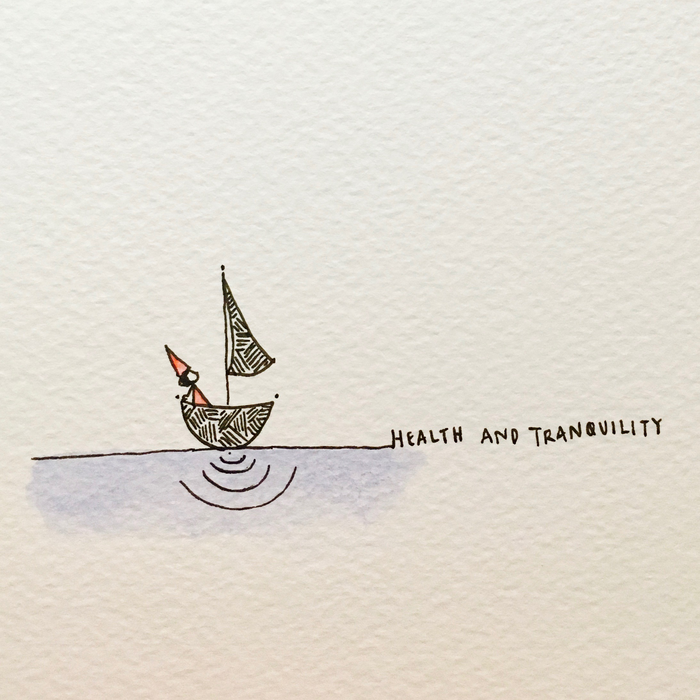 HEALTH AND TRANQUILITY